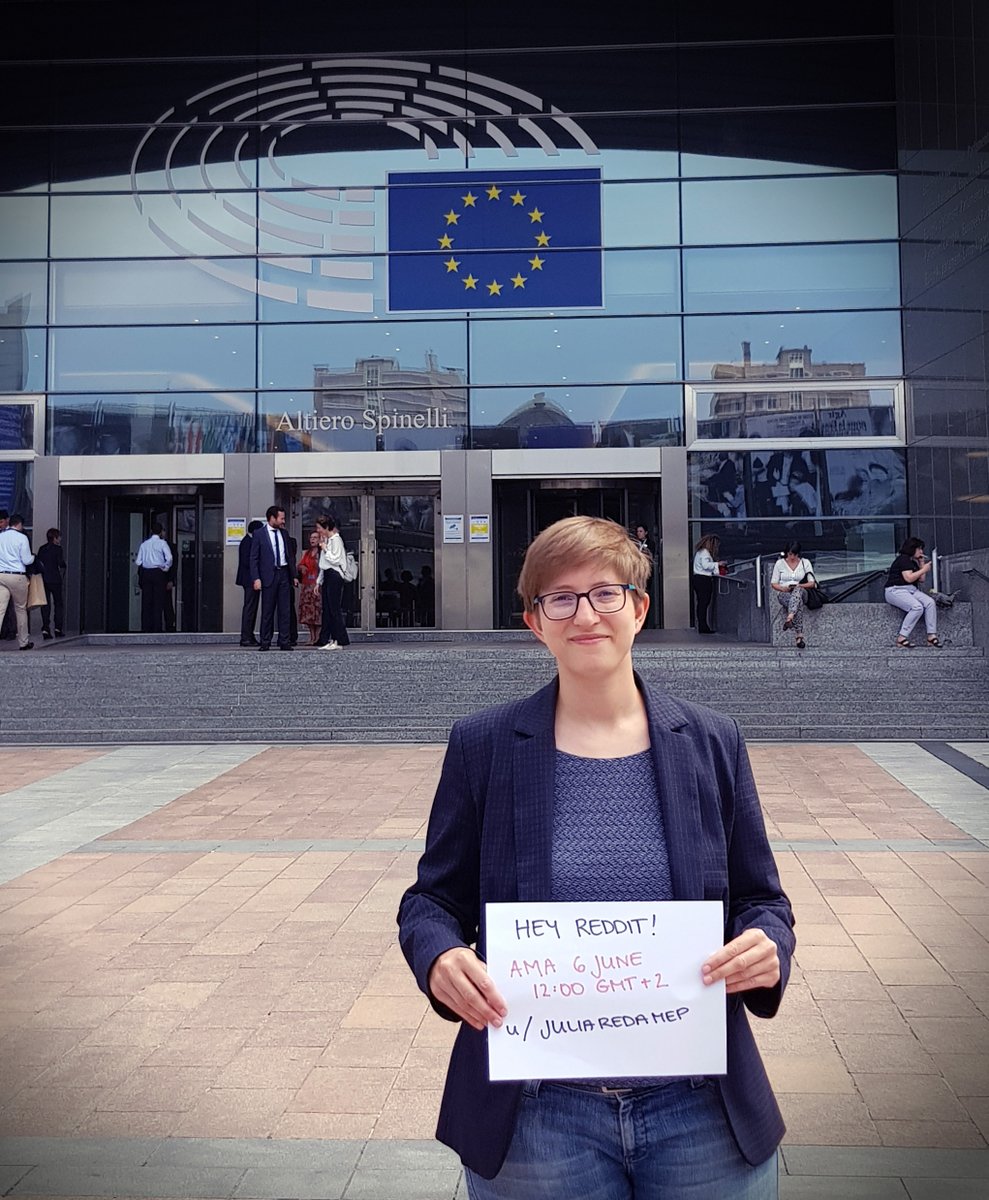 Altiero Spinelli
HEY REDDIT!
AMA 6 JUNE
12:00 GMT+2
u/JULIAREDAMEP